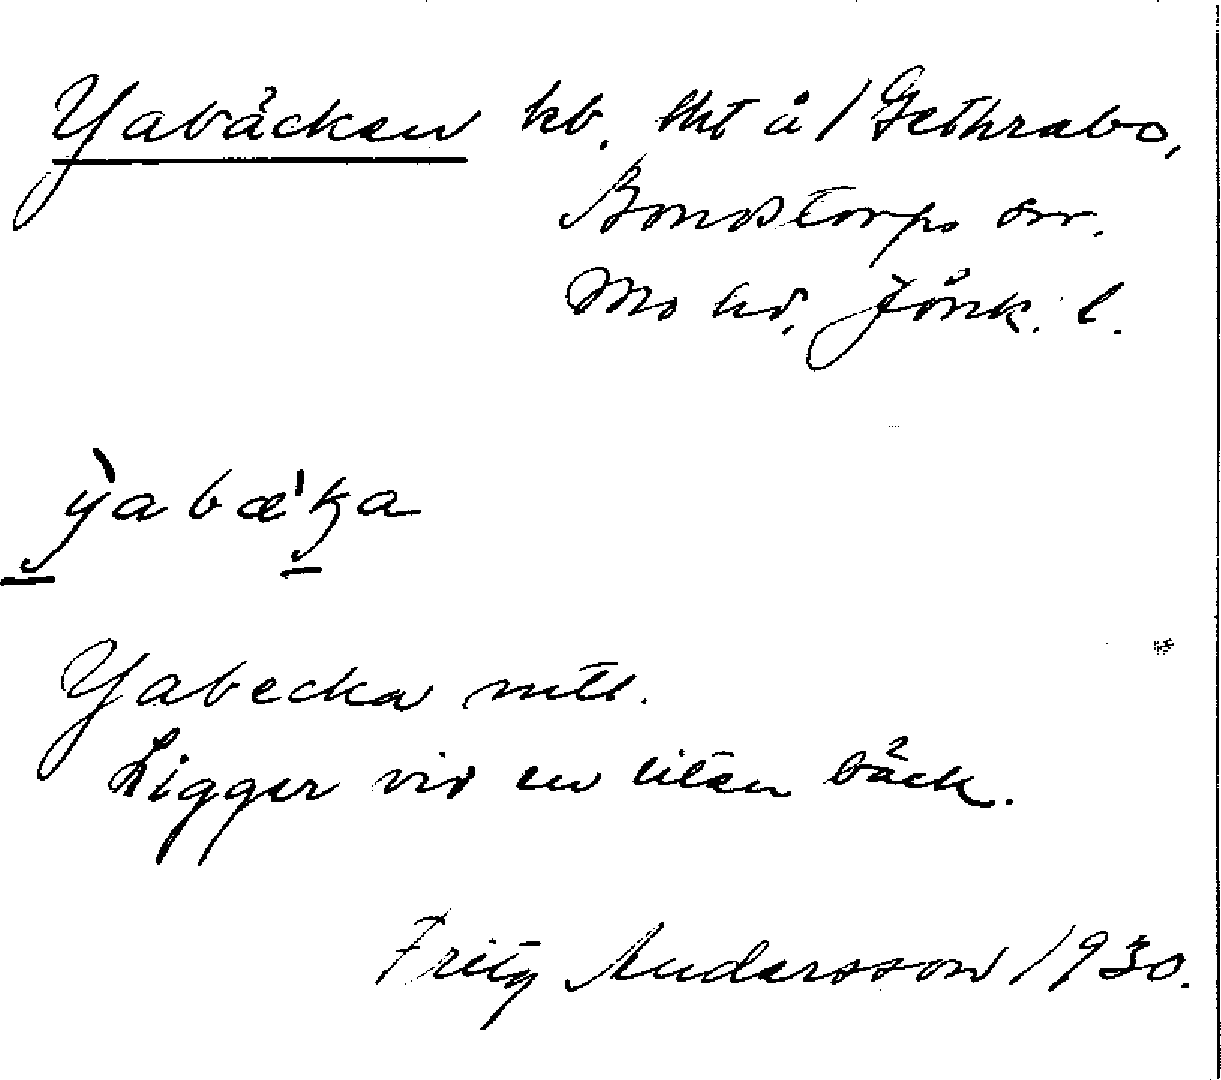 Yabäcken hb. lht å 1 Gethrabo,
Bondstorps sn.
Mo hd. Jönk. l.
yabæka
Yabecka mtl.
Ligger vid en liten bäck.
Fritz Andersson 1930.